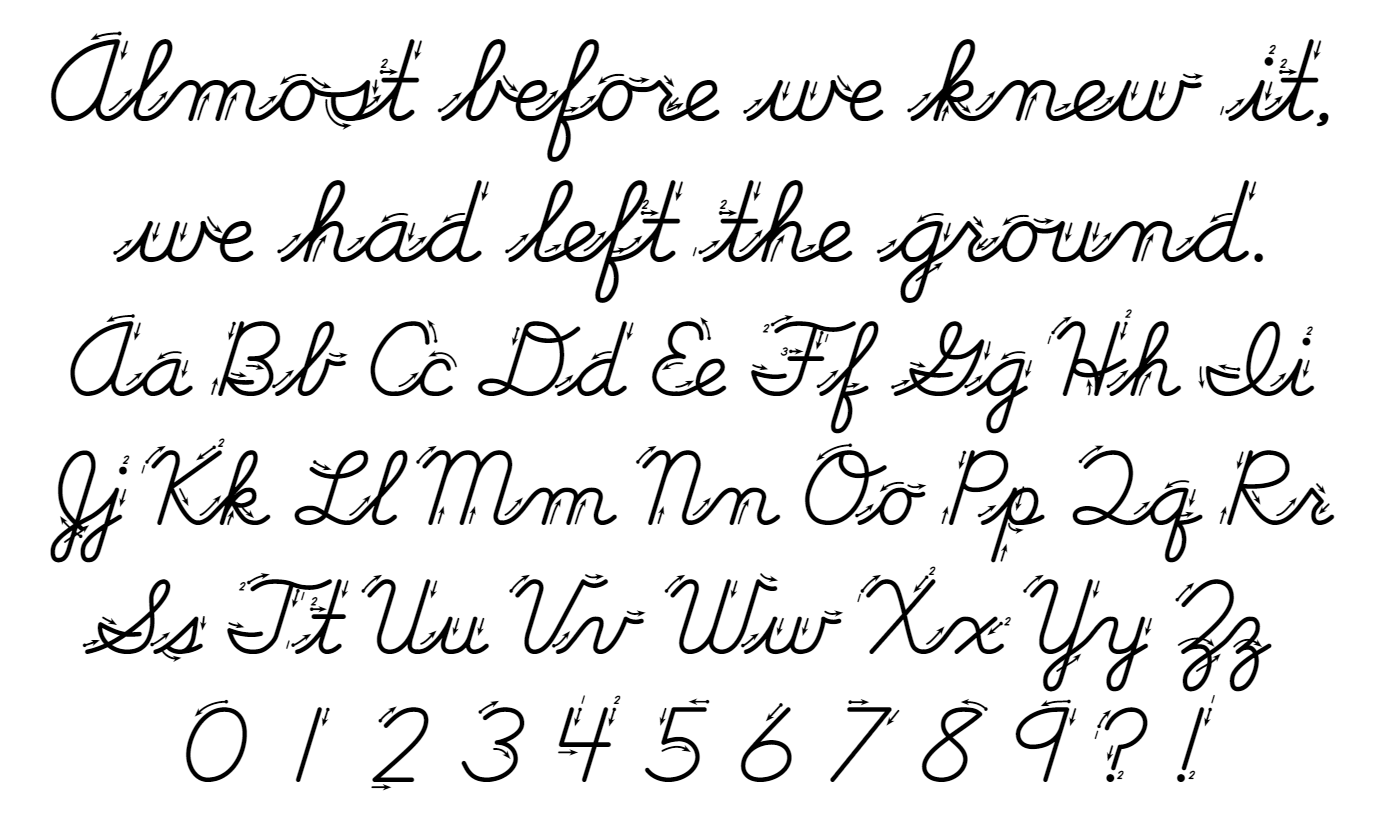 Almost before we knew it,
we had left the ground.
Aa Bb Cc Dd Ee Ff Gg Hh Ii
Jj Kk Ll Mm Nn Oo Pp Qq Rr
Ss Tt Uu Vv Ww Xx Yy Zz
0 1 2 3 4 5 6 7 8 9 ? !